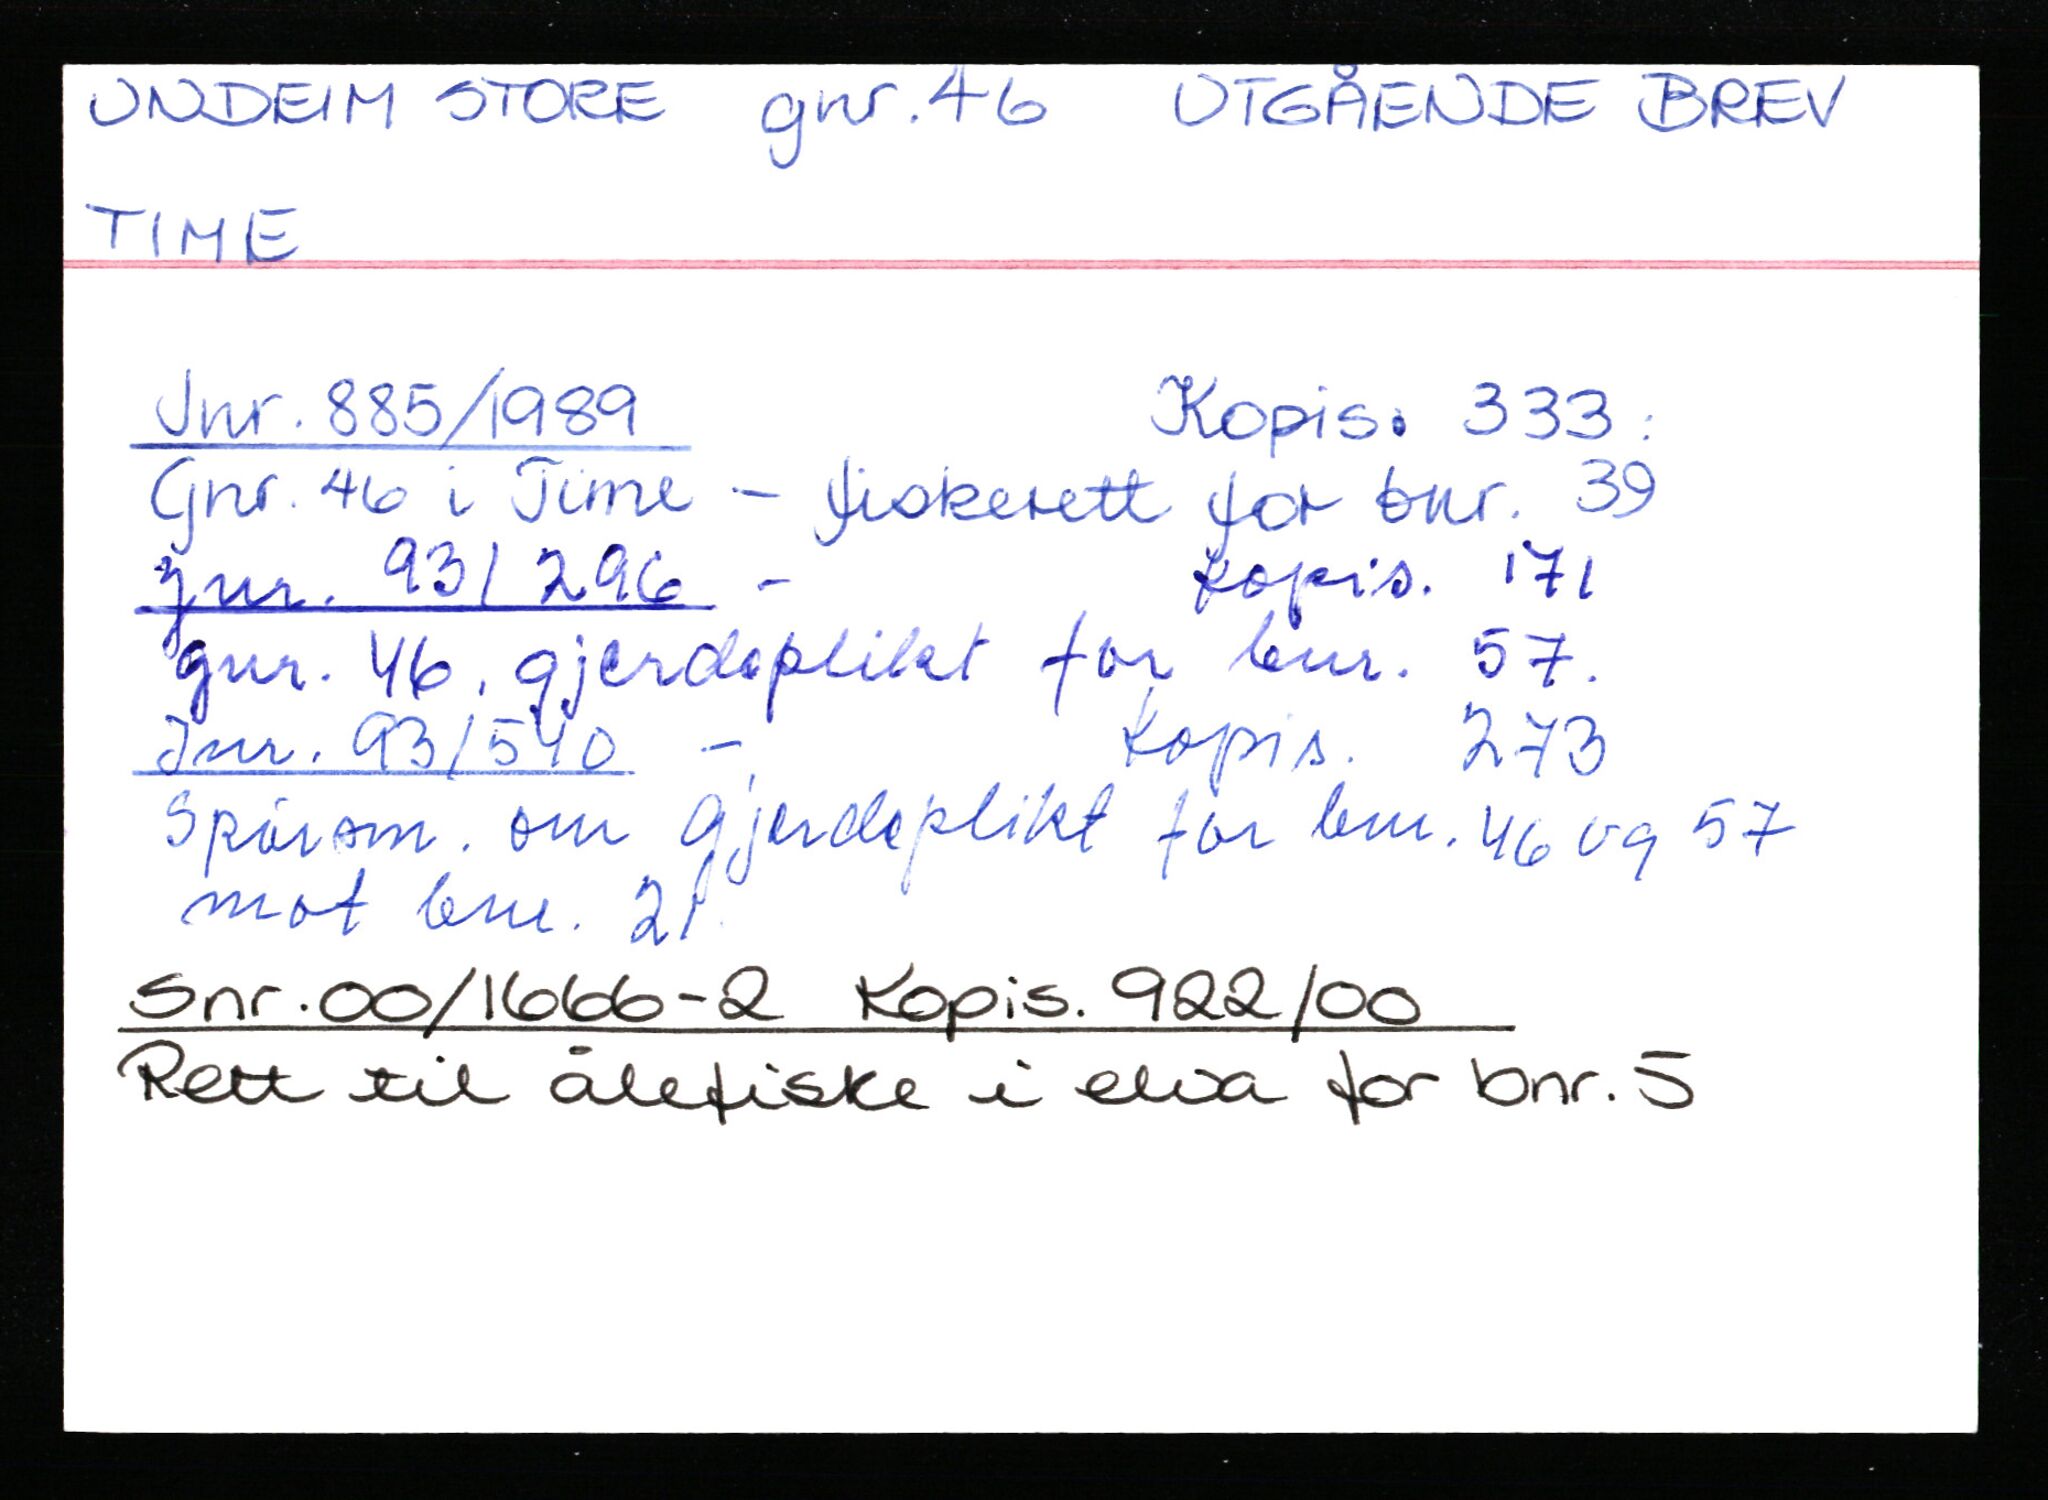 UNDEIM STORE gnr. 46 UTGÅENDE BREV
TIME
Jnr. 885/1989 Kopis. 333:
Gnr. 46 i Time - fiskerett for bnr. 39
Jnr. 93/296 - Kopis. 171
gnr. 46, gjerdeplikt for bnr. 57.
Jnr. 93/540 - Kopis. 273
Spörsm. om gjerdeplikt for bnr. 46 og 57
mot bnr. 21.
Snr. 00/1666-2 Kopis. 922/00
Rett til ålefiske i elva for bnr. 5